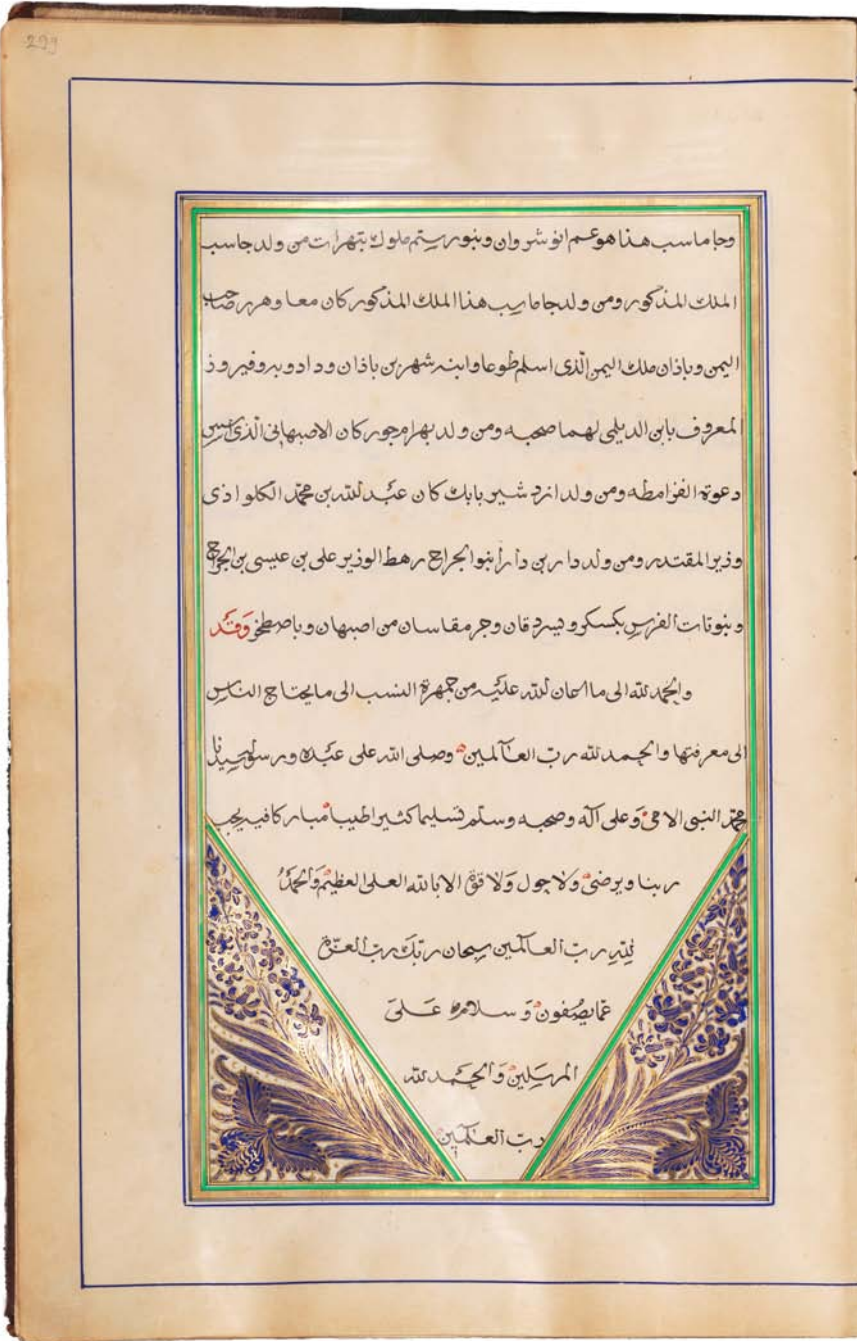 299
وجاماسب هذا هو عم انوشروان وبنو رستم ملوك بتهرات من ولد جاسب
الملك المذكور ومن ولد جاماسب هذا الملك المذكور كان معا وهرر صاحب
اليمن وباذان ملك اليمن الذى اسلم طوعا وابنه شهر بن باذان ودادويه وفيروذ
المعروف بابن الديلمى لهما صحبه ومن ولد بهرام جور كان الاصبهانى الذى اسس
دعوة القرامطه ومن ولد ازدشير بابك كان عبد لله بن محمد الكلواذى
وذير المقتدر ومن ولد دار بن دارا بنوا الجراح رهط الوزير على بن عيسى بن الجراح
وبنوتات الفرس بكسكر وديبردقان وجرمقاسان من اصبهان وباصطخر وقد
والحمد لله الى ما اعان لله عليه من جمهرة النسب الى ما يحتاج الناس
الى معرفتها والحمد لله رب العالمين وصلى الله على عبده ورسوله سيدنا
محمد النبى الامى وعلى آله وصحبه وسلم تسليما كثيرا طيبا مباركا فيه يحب
ربنا ويرضى ولا حول ولا قوة الا بالله العلى العظيم والحمد
لله رب العالمين سبحان ربك رب العزة
عما يصفون وسلام على
المرسلين والحمد لله
رب العالمين